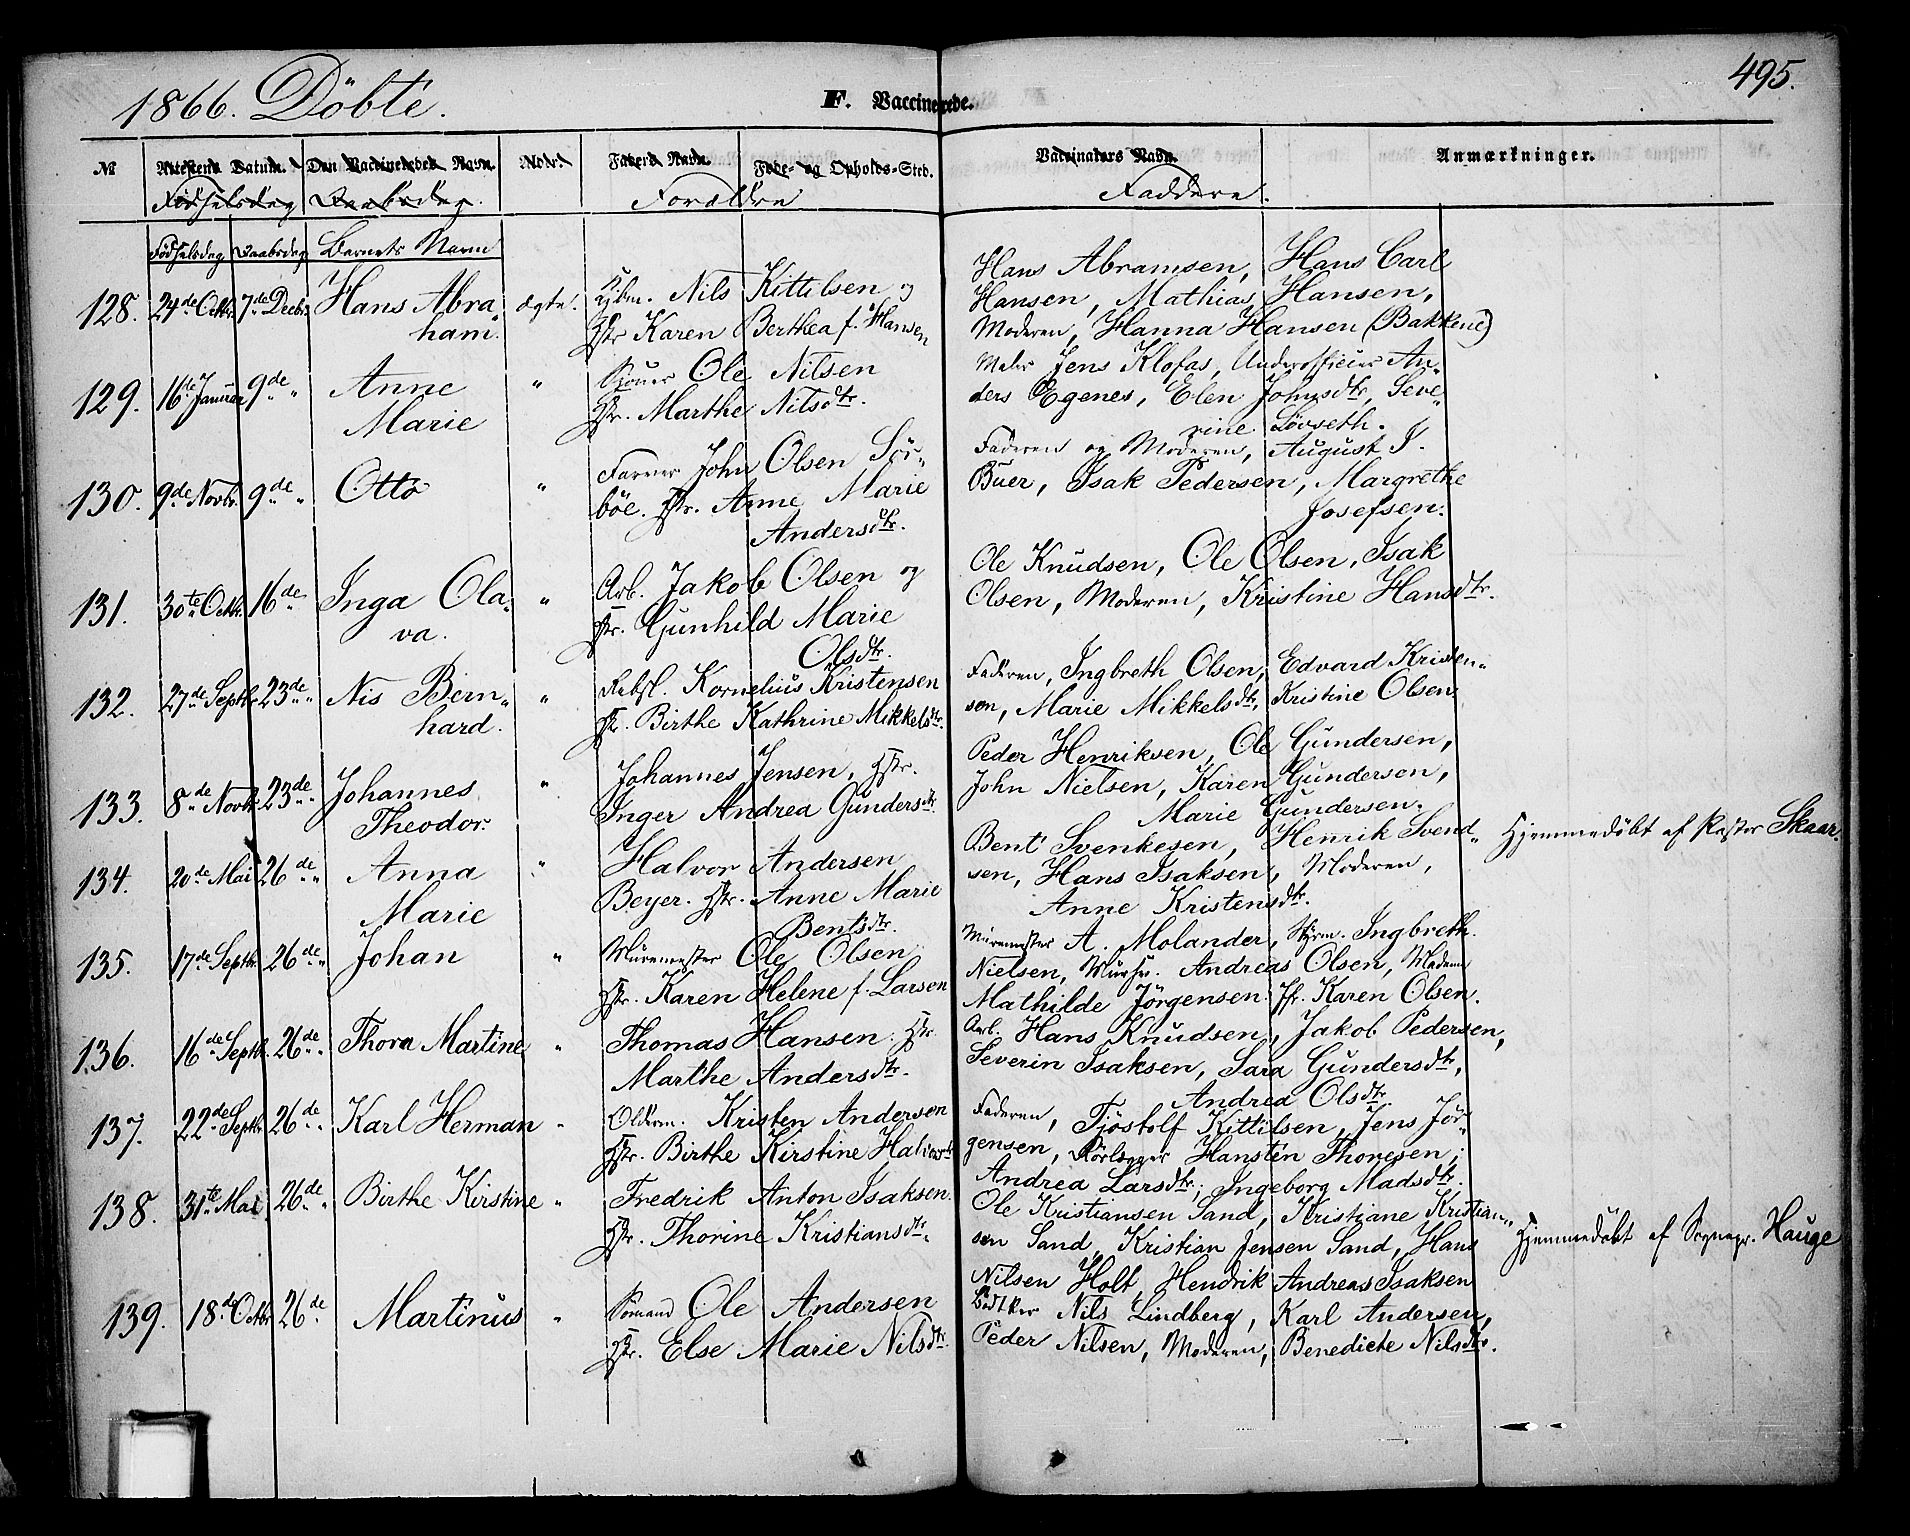 1866. Döbte.
F. Vaccinerede.
495.
№ Attestens Datum. Den Vaccineredes Navn. Alder. Faders Navn. Føde- og Opholds-Sted. Vaccinators Navn. Anmærkninger.
Fødselsdag Daabsdag. Forældre Faddere.
Fødselsdag Daabsdag Barnets Navn
128. 24de Octbr. 7de Decbr. Hans Abra
ham.
ægte.
Nils Kittilsen og
Hstr Karen Berthea f. Hansen
Hans Abramsen, Hans Carl
Hansen, Mathias Hansen,
Moderen, Hanna Hansen (Bakkene)
129. 16de Januar 9de " Anne
Marie
"
Ole Nilsen
Hstr. Marthe Nilsdtr.
Maler Jens Klofas, Underofficier An-
ders Egenes, Elen Johnsdtr, Seve-
rine Lövseth.
130. 9de Novbr. 9de " Otto
"
Farver John Olsen Sör-
böe. Hstr. Anne Marie
Andersdtr.
Faderen og Moderen, August J.
Buer, Isak Pedersen, Margrethe
Josefsen.
131. 30te Octbr. 16de " Inga Ola-
va.
"
Arb. Jakob Olsen og
Hstr. Gunhild Marie
Olsdtr.
Ole Knudsen, Ole Olsen, Isak
Olsen, Moderen, Kristine Hansdtr.
132. 27de Septbr. 23de " Nis Bern-
hard.
"
Rebsl. Kornelius Kristensen
Hstr. Birthe Kathrine Mikkelsdtr.
Faderen, Ingbreth Olsen, Edvard Kristen-
sen, Marie Mikkelsdtr, Kristine Olsen
133. 8de Novbr. 23de " Johannes
Theodor.
"
Johannes Jensen, Hstr.
Inger Andrea Gundersdtr.
Peder Henriksen, Ole Gundersen,
John Nielsen, Karen Gundersen,
Marie Gundersen.
134. 20de Mai 26de " Anna
Marie
"
Halvor Andersen
Beyer. Hstr. Anne Marie
Bentsdtr.
Bent Svenkesen, Henrik Svend-
sen, Hans Isaksen, Moderen,
Anne Kristensdtr.
Hjemmedöbt af Pastor Skaar.
135. 17de Septbr. 26de " Johan
"
Muremester Ole Olsen
Hstr. Karen Helene f. Larsen
Muremester A. Molander, Styrm. Ingbreth
Nielsen, Mursv. Andreas Olsen, Madam
Mathilde Jörgensen. Karen Olsen.
136. 16de Septbr. 26de " Thora Martine
"
Thomas Hansen. Hstr.
Marthe Andersdtr.
Arb. Hans Knudsen, Jakob Pedersen,
Severin Isaksen, Sara Gundersdtr,
Andrea Olsdtr.
137. 22de Septbr. 26de " Karl Herman
"
Olderm. Kristen Andersen
Hstr. Birthe Kirstine Halvorsdtr
Faderen, Tjöstolf Kittilsen, Jens Jör-
gensen, Hansten Thoresen,
Andrea Larsdtr, Ingeborg Madsdtr.
138. 31te Mai 26de " Birthe Kirstine
"
Fredrik Anton Isaksen.
Hstr. Thorine Kristiansdtr.
Ole Kristiansen Sand, Kristiane Kristian-
sen Sand, Kristian Jensen Sand, Hans
Nilsen Holt, Hendrik Andreas Isaksen
Hjemmedöbt af Sognepr. Hauge
139. 18de Octbr. 26de Martinus
"
Sömand Ole Andersen
Hstr. Else Marie Nilsdtr.
Bödker Nils Lindberg, Karl Andersen,
Peder Nilsen, Moderen, Benedicte Nilsdtr.